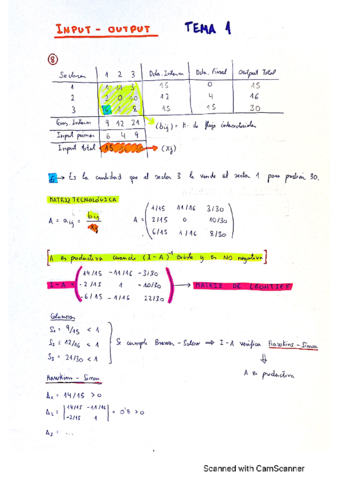 INPUT - OUTPUT TEMA 1
⑧
Sectores 1 2 3 Dda. Interm Dda. Final Output Total
1 1 11 3 15 0 15
2 2 0 10 12 4 16
3 6 1 8 15 15 30
Cons. Interm 9 12 21 (bij) =
Input primar 6 4 9
Input total 15 (xj)
6 → Es la cantidad que el sector 3 le vende al sector 1 para producir 30.
MATRIZ TECNOLÓGICA
A = aij = bij / xj A = ( 1/15 11/16 3/30
2/15 0 10/30
6/15 1/16 8/30 )
[A es productiva cuando (I-A)⁻¹ existe y es NO negativa]
I-A = ( 14/15 -11/16 -3/30
-2/15 1 -10/30
-6/15 -1/16 22/30 ) → MATRIZ DE LEONTIEF
Columnas
S₁ = 9/15 < 1
S₂ = 12/16 < 1
S₃ = 21/30 < 1
Si cumple Brauer-Solow ⇒ I-A verifica Hawkins-Simon
⇓
A es productiva
Hawkins - Simon
Δ₁ = 14/15 > 0
Δ₂ = | 14/15 -11/16
-2/15 1 | = 0'8 > 0
Δ₃ = ...
Scanned with CamScanner